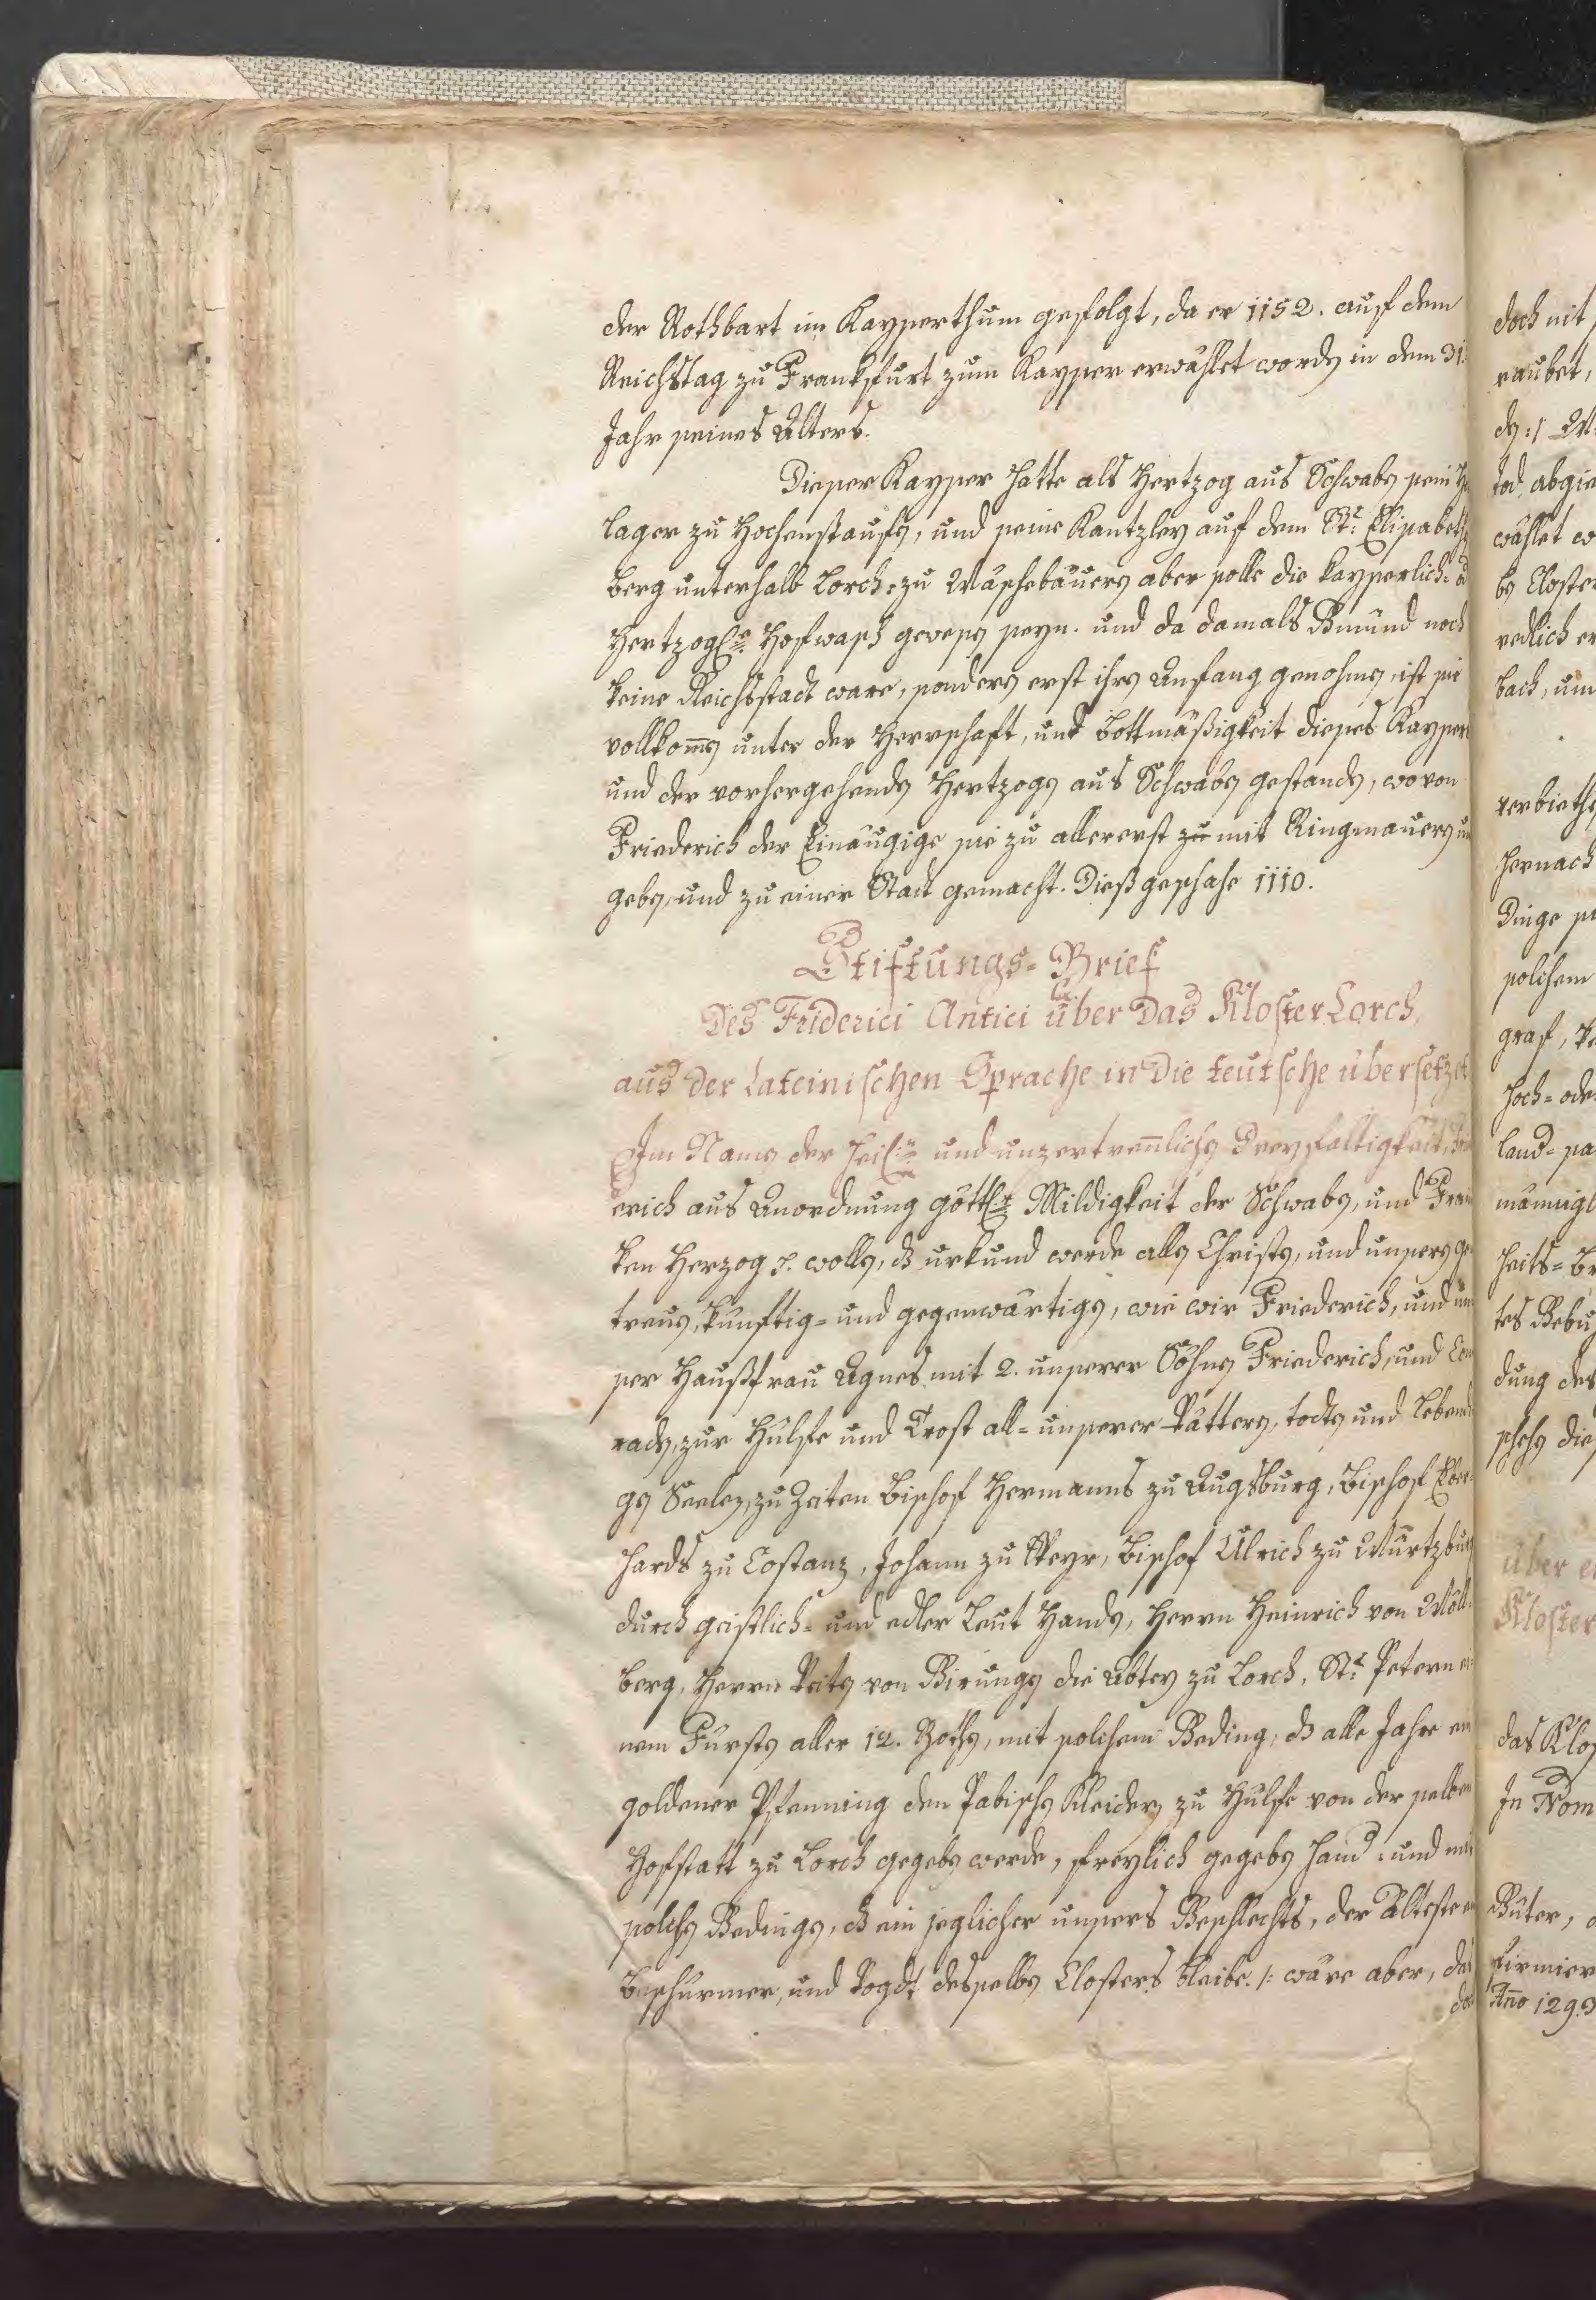 der Rothbart im Kayserthum gefolgt, da er 1152. auf dem
Reichstag zu Frankfurt zum Kayser erwählet wordn in dem 31
Jahr seines Alters.
Dieser Kayser hatte als Hertzog aus Schwabn sein
lager zu Hochenstaufn, und seine Kantzley auf dem St. Elisabeth
berg unterhalb Lorch: zu Wäschebäuern aber solle die kayserlich-
Hertzogl. Hofwasch gewesn seyn. und da damals Gmünd noch
keine Reichsstadt ware, sondern erst ihrn Anfang genohmn, ist sie
vollkomn unter der Herrschaft, und Bottmäßigkeit dieses Kaysers
und der vorhergehendn Hertzogn aus Schwabn gestandn, wovon
Friederich der Einäugige sie zu allererst zu mit Ringmauern um
gebn, und zu einer Stadt gemacht. Dieß geschahe 1110.
Stiftungs-Brief
Des Friderici Antici über das Kloster Lorch,
aus der Lateinischen Sprache in die teutsche übersetzet
Im Namn der heil. und unzertrenlichn Dreyfaltigkeit,
erich aus Anordnung göttl. Mildigkeit der Schwabn, und Fran
ken Herzog wolln, dz urkund werde alln Christn, und unsern ge
treun, künftig- und gegenwärtign, wie wir Friederich, und un
ser Haußfrau Agnes mit 2. unserer Söhnn Friederich, und Con
radn, zur Hülfe und Trost all- unserer Vättern, todtn und lebendi
gn Seelen, zu Zeiten Bischof Hermanns zu Augsburg, Bischof Eber
hards zu Costanz, Johann zu Speyr, Bischof Ulrich zu Würtzburg
durch geistlich- und edler Leut Handn, Herrn Heinrich von
berg, Herrn Veitn von Birungn die Abtey zu Lorch, St. Petern ei
nem Fürstn aller 12. Bothn, mit solchem Beding, dz alle Jahre ein
goldener Pfenning den Pabischn Kleidern zu Hülfe von der selben
Hofstatt zu Lorch gegebn werde, freylich gegebn hand: und mit
solchn Bedingn, dz ein jeglicher unsers Geschlechts, der Älteste
Beschürmer, und Vogdt desselbn Closters bleibe. /: wäre aber, daß
doch nit
raubet,
dn :/
tod abgie
wählet
bn Closter
redlich er
bach, um
verbiethn
hernach
Dinge
solchem
graf,
hoch- ode
land-
männigl
heits-
tes
dung des
schehn die
über e
Kloster
das Klos
In Nom
Güter,
firmier
Año 1293